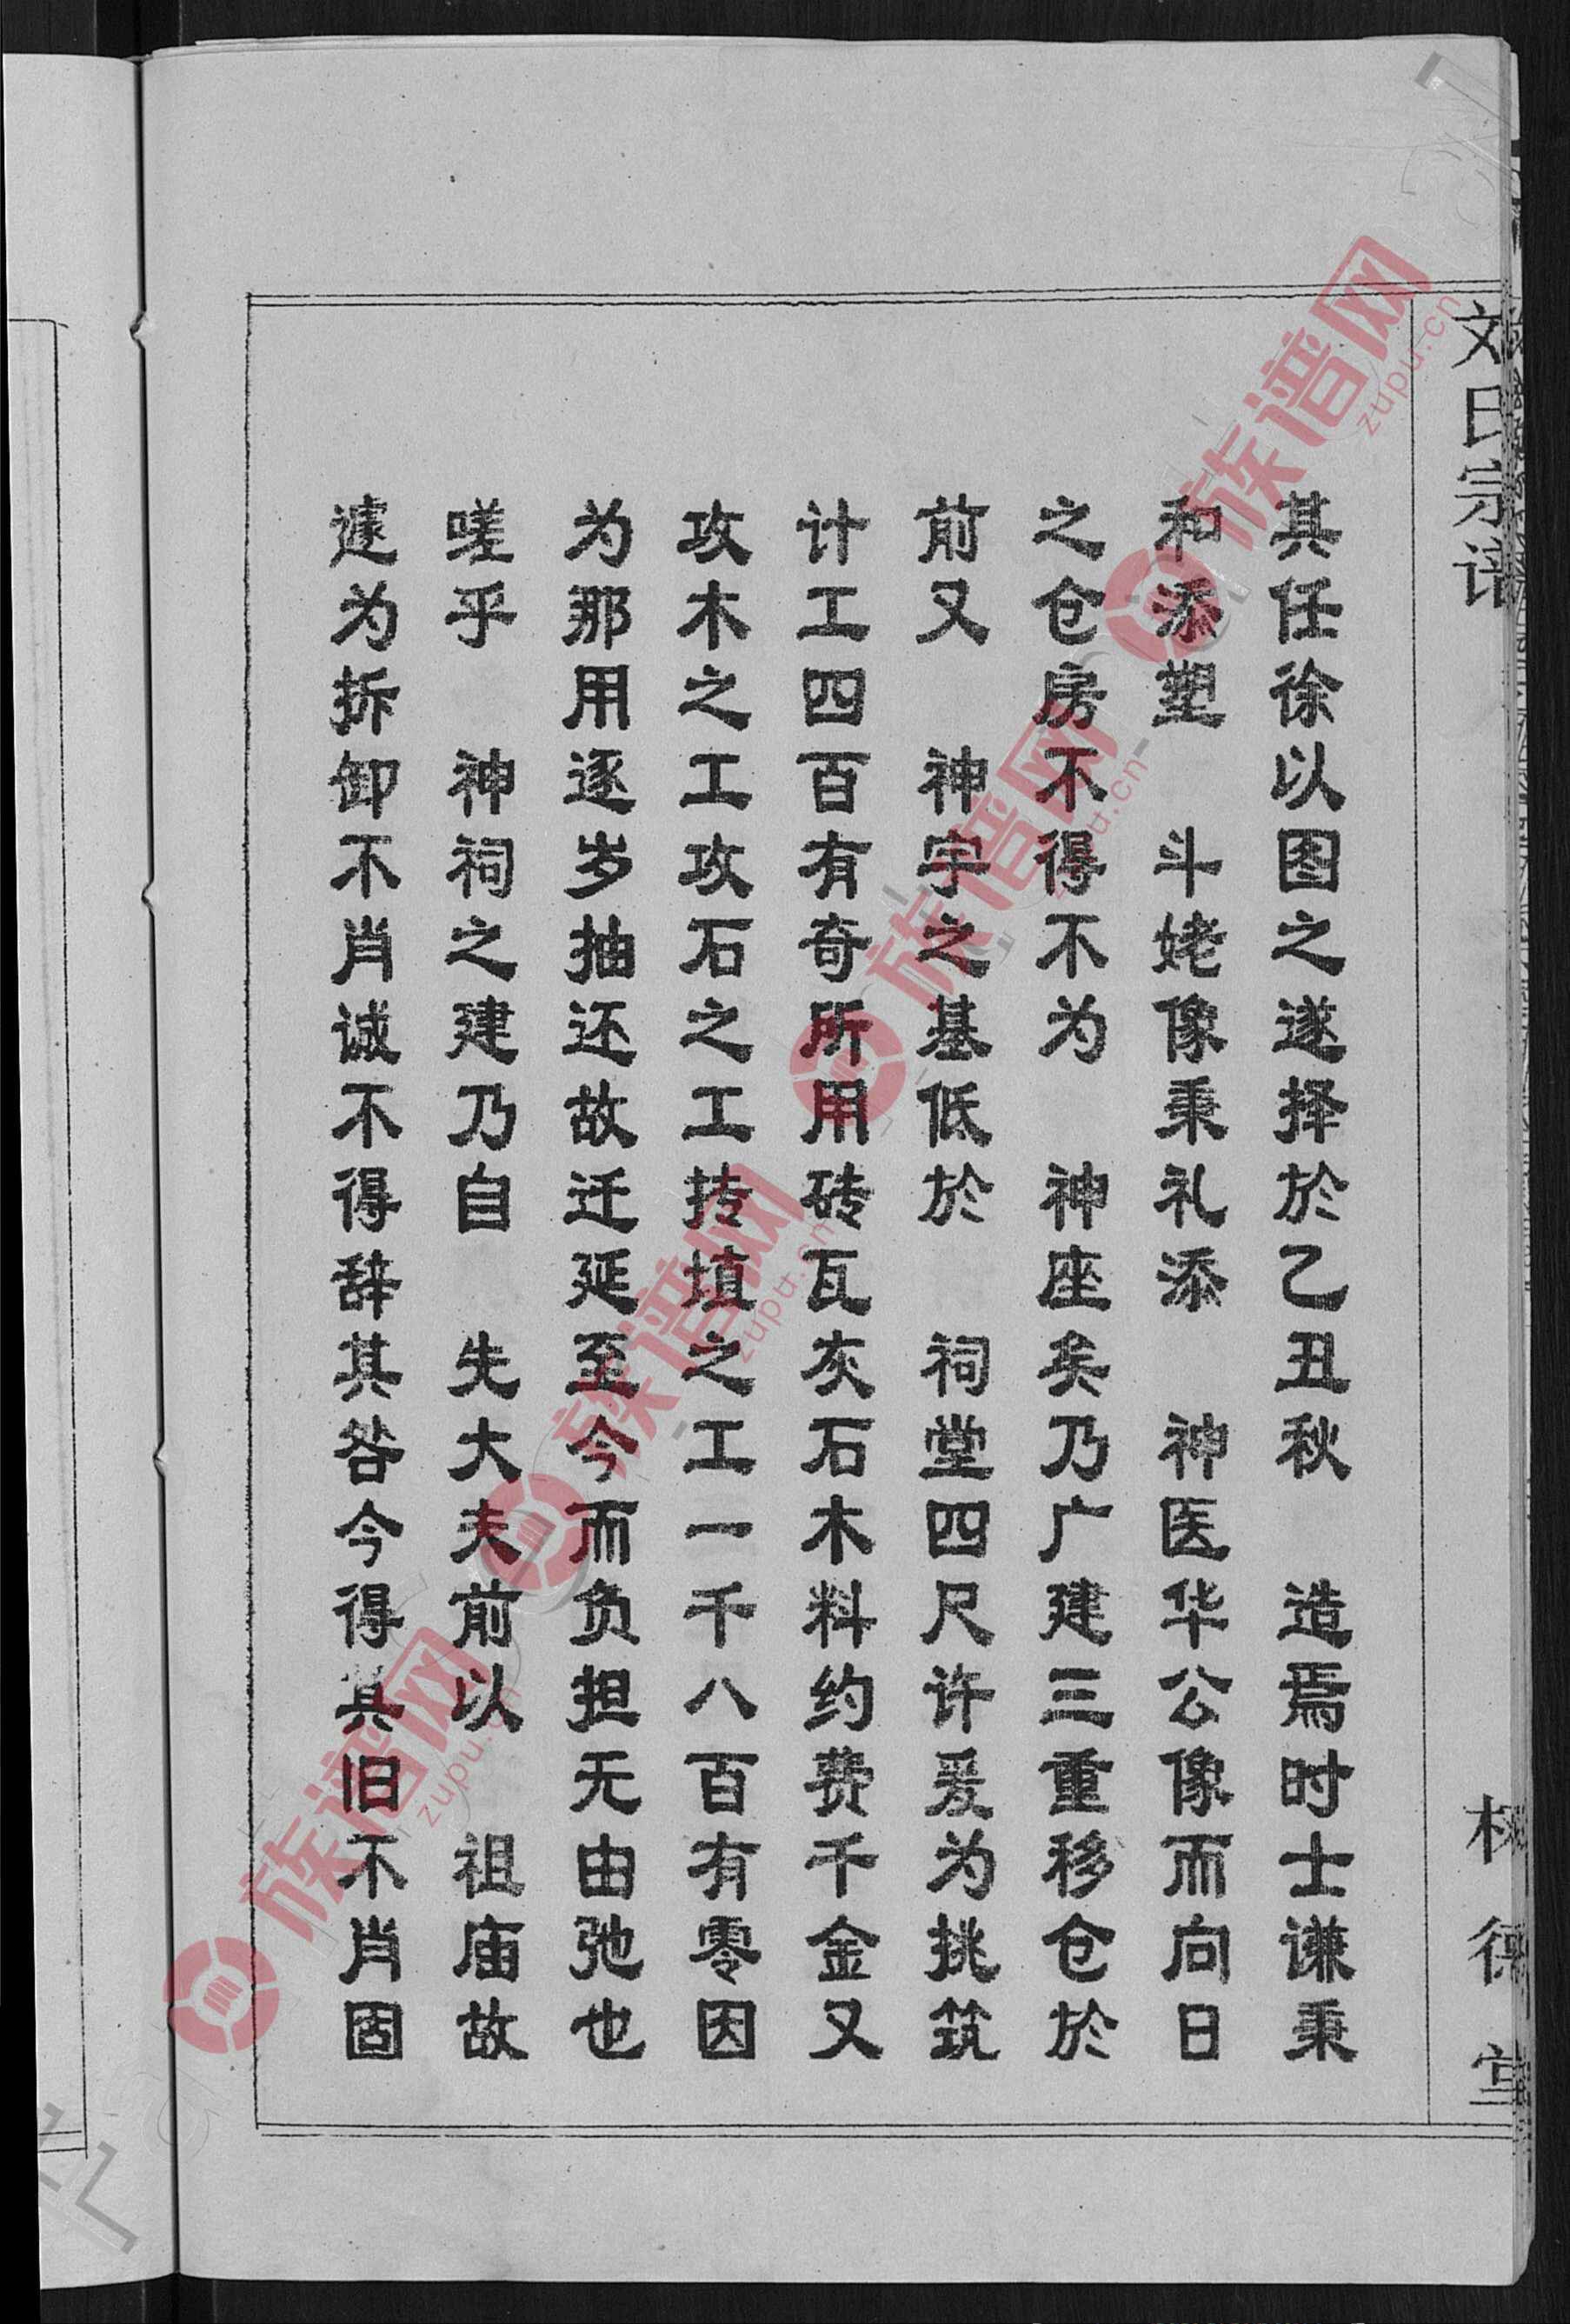 文氏宗谱
树德堂
其任徐以图之遂择於乙丑秋 造焉时士谦秉
和添塑 斗姥像秉礼添 神医华公像而向日
之仓房不得不为 神座矣乃广建三重移仓於
前又 神宇之基低於 祠堂四尺许爰为挑筑
计工四百有奇所用砖瓦灰石木料约费千金又
攻木之工攻石之工抟填之工一千八百有零因
为那用逐岁抽还故迁延至今而负担无由弛也
嗟乎 神祠之建乃自 先大夫前以 祖庙故
遽为拆卸不肖诚不得辞其咎今得其旧不肖固
族谱网
zupu.cn
族谱网
zupu.cn
族谱网
zupu.cn
族谱网
zupu.cn